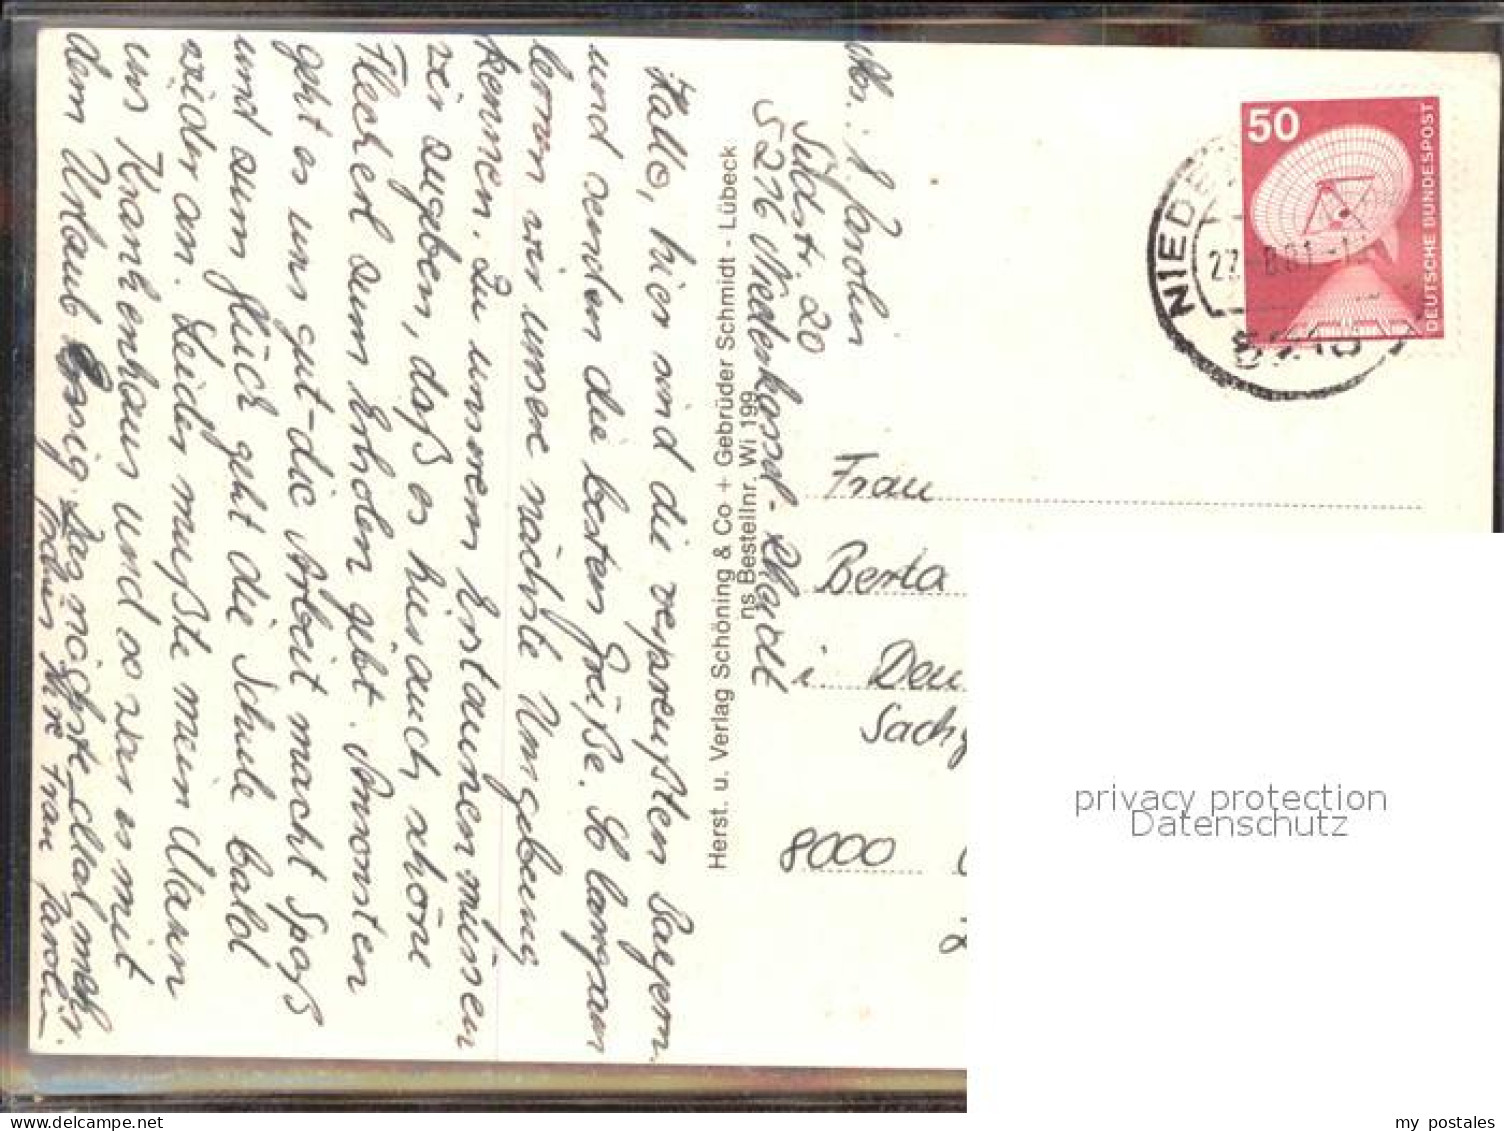 Abs.: J. Jarolin
Südstr. 20
5216 Niederkassel-Rheidt
Hallo, hier sind die verpreußten Bayern
und senden die besten Grüße. So langsam
lernen wir unsere nächste Umgebung
kennen. Zu unserem Erstaunen müssen
wir zugeben, daß es hier auch schöne
Fleckerl zum Erholen gibt. Ansonsten
geht es uns gut - die Arbeit macht Spaß
und zum Glück geht die Schule bald
wieder an. Leider mußte mein Mann
ins Krankenhaus und so war es mit
dem Urlaub Essig. Das nächste Mal mehr.
Ihre Frau Jarolin
Herst. u. Verlag Schöning & Co + Gebrüder Schmidt - Lübeck
ns Bestellnr. Wi 199
50
DEUTSCHE BUNDESPOST
NIEDE
27.-8.81-1
5216
Frau
Berta
i Den
Sach
8000
privacy protection
Datenschutz
my postales